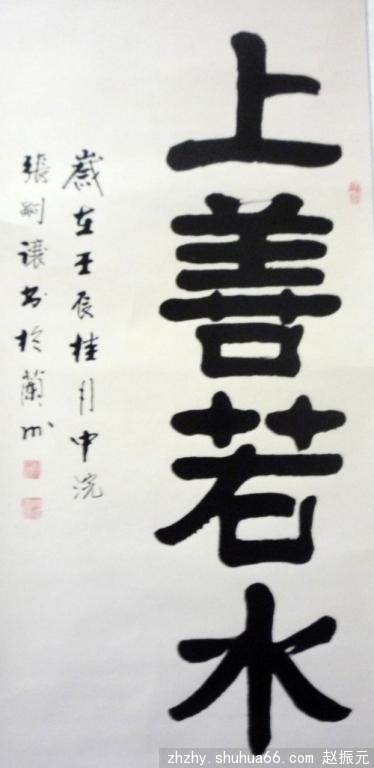 上善若水
歲在壬辰桂月中浣
張嗣讓书於蘭州
zhzhy.shuhua66.com 赵振元